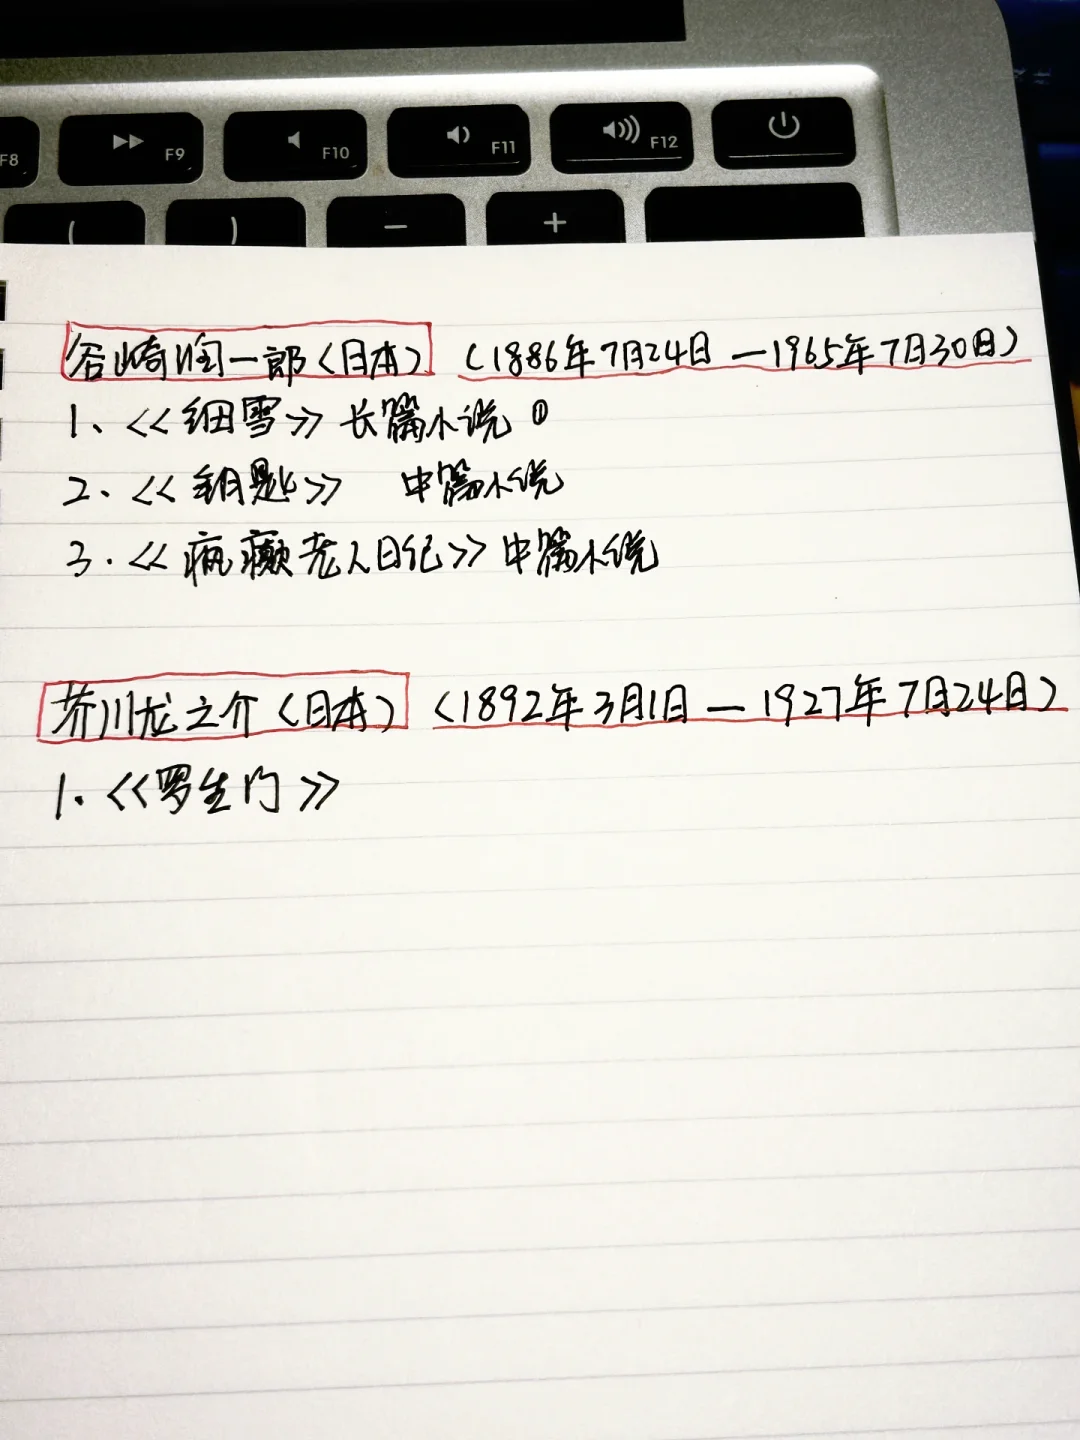 F8 F9 F10 F11 F12
( ) - +
谷崎润一郎(日本) (1886年7月24日—1965年7月30日)
1、<<细雪>> 长篇小说 ①
2、<<钥匙>> 中篇小说
3.<<疯癫老人日记>> 中篇小说
芥川龙之介(日本) (1892年3月1日—1927年7月24日)
1.<<罗生门>>